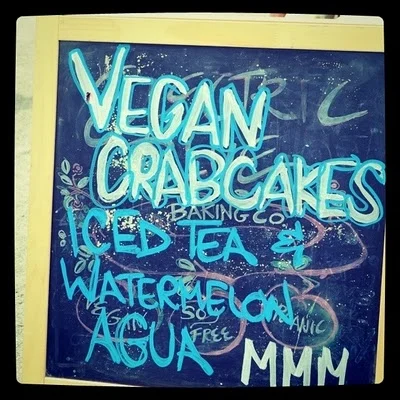 VEGAN
CRABCAKES
BAKING CO
ICED TEA &
WATERMELON
SO
FREE
AGUA
MMM